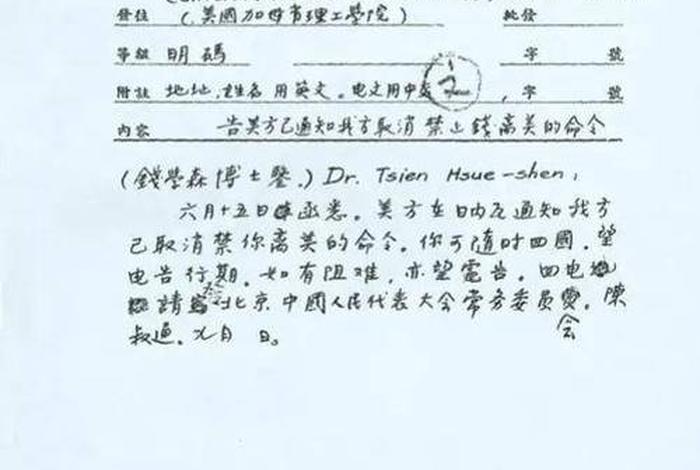 發往 (美國加州理工學院) 批發
等級 明碼 字 號
附註 地址、姓名用英文。电文用中文 字 號
內容 告美方已通知我方取消禁止錢离美的命令
(錢學森博士鑒.) Dr. Tsien Hsue-shen,
六月十五日函悉。美方在日內瓦通知我方
已取消禁你离美的命令。你可随时回國,望
电告行期。如有阻难,亦望電告。回电地
請寄北京中國人民代表大会常务委员會。陳
叔通。九月 日。